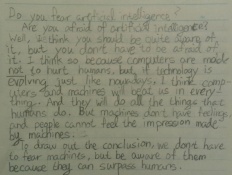 Do you fear artificial intelligence?
Are you afraid of artificial intelligence?
Well, I think you should be quite aware of
it, but you don't have to be afraid of
it. I think so because computers are made
not to hurt humans, but if technology is
evolving just like nowadays, I think comp-
uters and machines will beat us in every-
thing. And they will do all the things that
humans do. But machines don't have feelings
and people cannot feel the impression made
by machines.
To draw out the conclusion, we don't have
to fear machines, but be aware of them
because they can surpass humans.